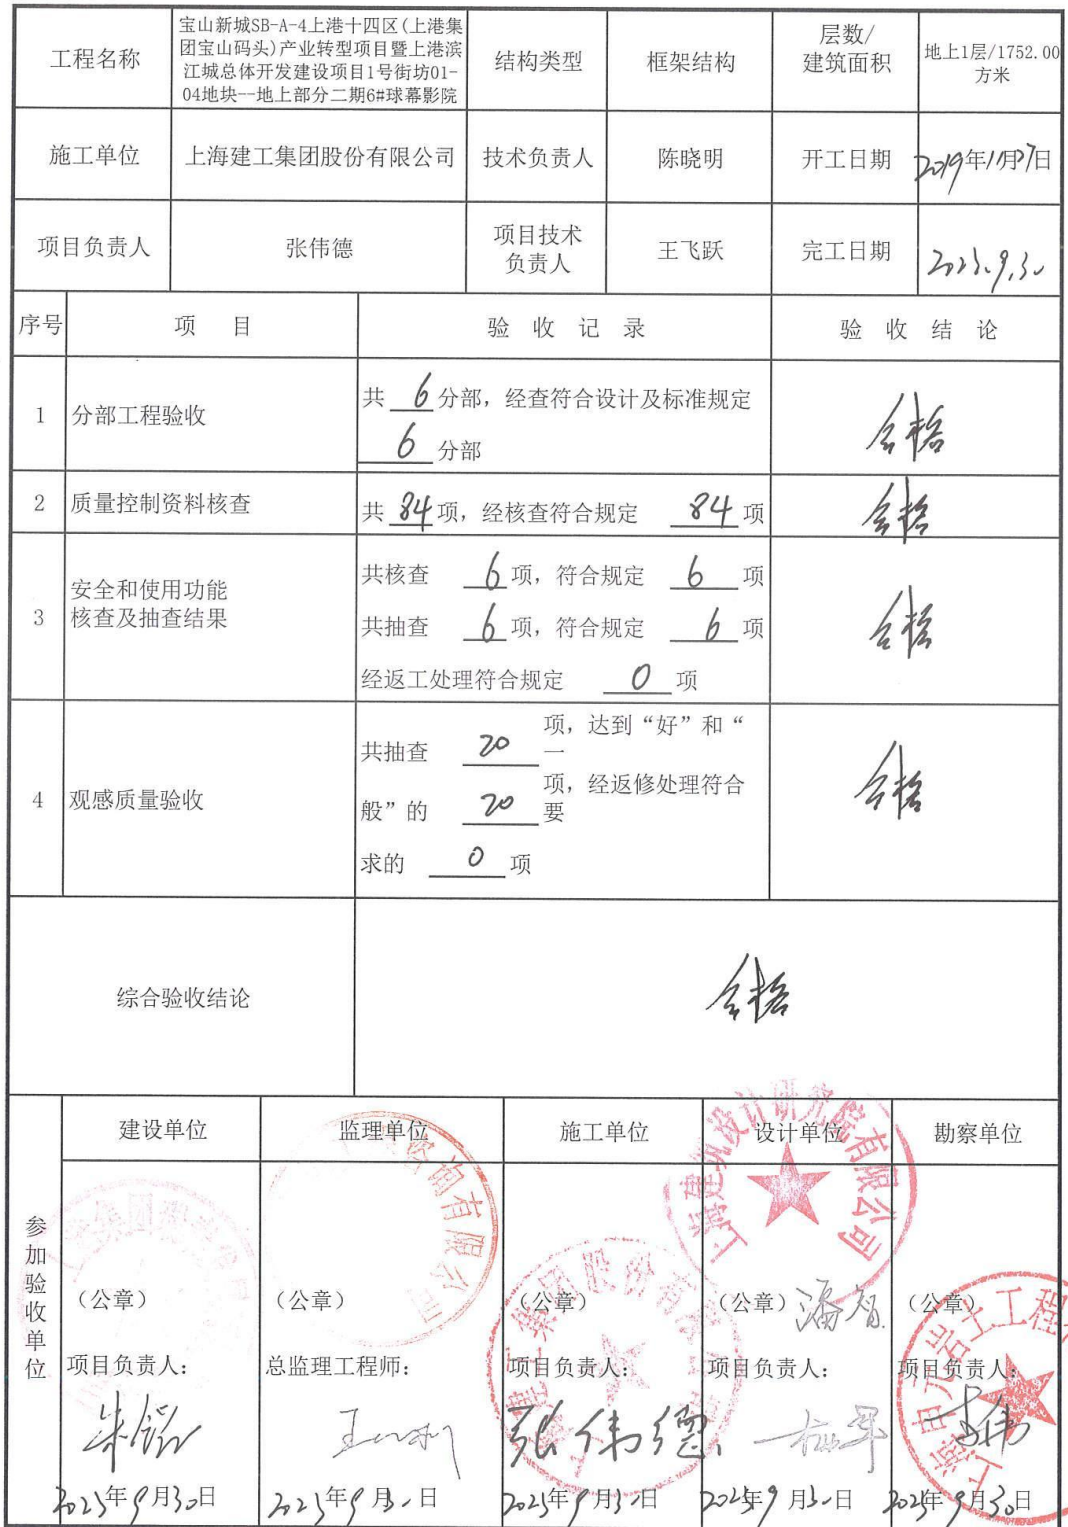 工程名称
宝山新城SB-A-4上港十四区(上港集
团宝山码头)产业转型项目暨上港滨
江城总体开发建设项目1号街坊01-
04地块--地上部分二期6#球幕影院
结构类型
框架结构
层数/
建筑面积
地上1层/1752.00
方米
施工单位
上海建工集团股份有限公司
技术负责人
陈晓明
开工日期
2019年11月27日
项目负责人
张伟德
项目技术
负责人
王飞跃
完工日期
2023.9.30
序号
项 目
验 收 记 录
验 收 结 论
1
分部工程验收
共 6 分部，经查符合设计及标准规定
6 分部
合格
2
质量控制资料核查
共 84 项，经核查符合规定 84 项
合格
3
安全和使用功能
核查及抽查结果
共核查 6 项，符合规定 6 项
共抽查 6 项，符合规定 6 项
经返工处理符合规定 0 项
合格
4
观感质量验收
共抽查 20 项，达到“好”和“
一
般”的 20 项，经返修处理符合
要
求的 0 项
合格
综合验收结论
合格
参加验收单位
建设单位
监理单位
施工单位
设计单位
勘察单位
（公章）
（公章）
（公章）
（公章）
（公章）
潘智
项目负责人：
总监理工程师：
项目负责人：
项目负责人：
项目负责人：
张伟德
年9月30日
年9月30日
年9月30日
年9月30日
年9月30日
咨询有限公司
建工集团股份有限
上海建筑设计研究院有限公司
上海申元岩土工程